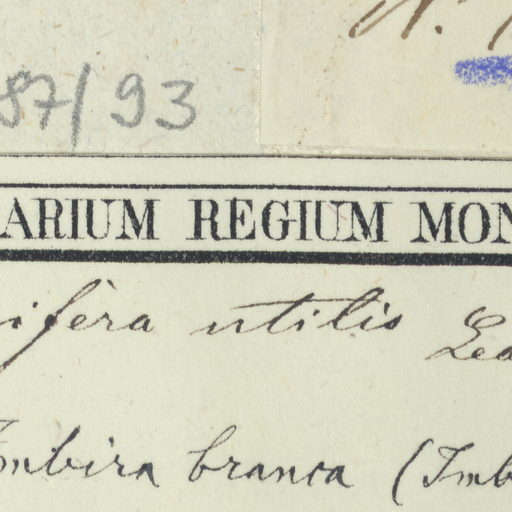 N.
87/93
ARIUM REGIUM MON
ifera utilis Lea
Imbira branca (Imb